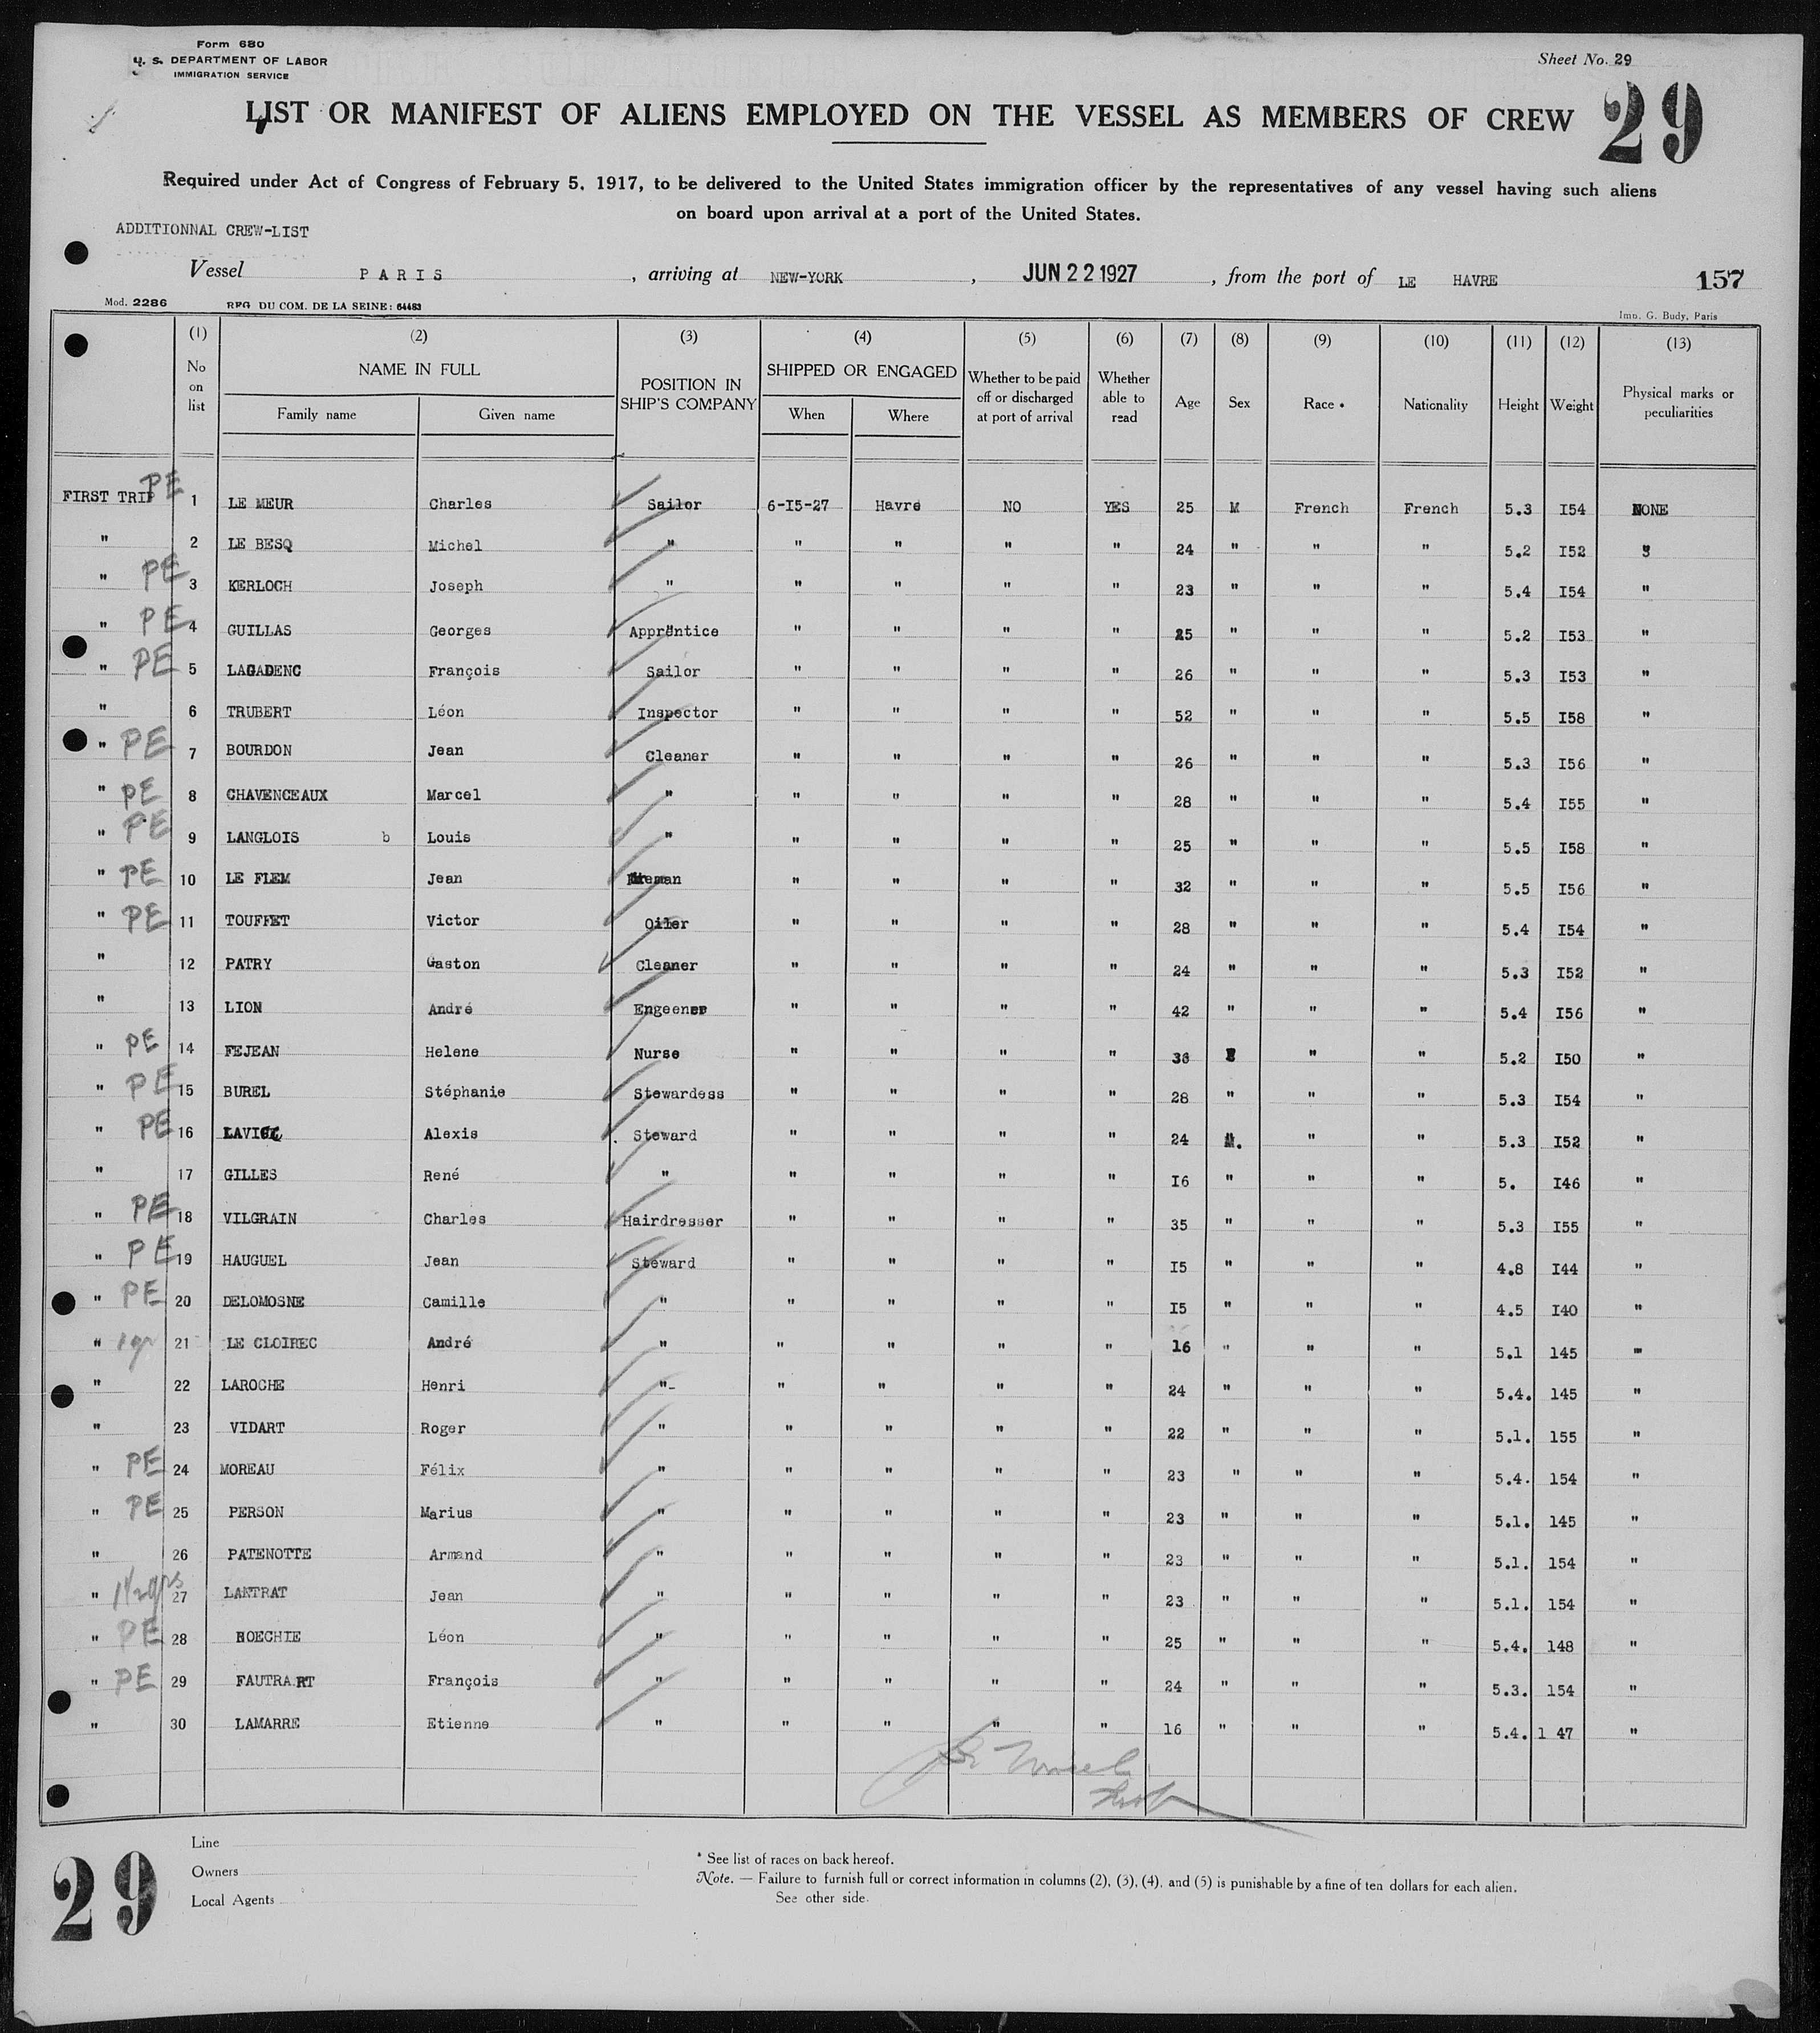 Form 680
U. S. DEPARTMENT OF LABOR
IMMIGRATION SERVICE
Sheet No. 29
LIST OR MANIFEST OF ALIENS EMPLOYED ON THE VESSEL AS MEMBERS OF CREW
29
Required under Act of Congress of February 5, 1917, to be delivered to the United States immigration officer by the representatives of any vessel having such aliens
on board upon arrival at a port of the United States.
ADDITIONNAL CREW-LIST
Vessel PARIS, arriving at NEW-YORK, JUN 22 1927, from the port of LE HAVRE 157
Mod. 2286 REG DU COM. DE LA SEINE: 64483 Imp. G. Budy, Paris
(1) (2) (3) (4) (5) (6) (7) (8) (9) (10) (11) (12) (13)
No on list NAME IN FULL Family name Given name POSITION IN SHIP'S COMPANY SHIPPED OR ENGAGED When Where Whether to be paid off or discharged at port of arrival Whether able to read Age Sex Race * Nationality Height Weight Physical marks or peculiarities
FIRST TRIP PE 1 LE MEUR Charles Sailor 6-I5-27 Havre NO YES 25 M French French 5.3 I54 NONE
" 2 LE BESQ Michel " " " " " 24 " " " 5.2 I52 "
" PE 3 KERLOCH Joseph " " " " " 23 " " " 5.4 I54 "
" PE 4 GUILLAS Georges Apprentice " " " " 25 " " " 5.2 I53 "
" PE 5 LAGADENC François Sailor " " " " 26 " " " 5.3 I53 "
" 6 TRUBERT Léon Inspector " " " " 52 " " " 5.5 I58 "
" PE 7 BOURDON Jean Cleaner " " " " 26 " " " 5.3 I56 "
" PE 8 CHAVENCEAUX Marcel " " " " " 28 " " " 5.4 I55 "
" PE 9 LANGLOIS b Louis " " " " " 25 " " " 5.5 I58 "
" PE 10 LE FLEM Jean " " " " 32 " " " 5.5 I56 "
" PE 11 TOUFFET Victor Oiler " " " " 28 " " " 5.4 I54 "
" 12 PATRY Gaston Cleaner " " " " 24 " " " 5.3 I52 "
" 13 LION André Engeener " " " " 42 " " " 5.4 I56 "
" PE 14 FEJEAN Helene Nurse " " " " 36 " " 5.2 I50 "
" PE 15 BUREL Stéphanie Stewardess " " " " 28 " " " 5.3 I54 "
" PE 16 Alexis Steward " " " " 24 M. " " 5.3 I52 "
" 17 GILLES René " " " " " I6 " " " 5. I46 "
" PE 18 VILGRAIN Charles Hairdresser " " " " 35 " " " 5.3 I55 "
" PE 19 HAUGUEL Jean Steward " " " " I5 " " " 4.8 I44 "
" PE 20 DELOMOSNE Camille " " " " " I5 " " " 4.5 I40 "
" 21 LE CLOIREC André " " " " " 16 " " " 5.1 145 "
" 22 LAROCHE Henri "- " " " " 24 " " " 5.4. 145 "
" 23 VIDART Roger " " " " " 22 " " " 5.1. 155 "
" PE 24 MOREAU Félix " " " " " 23 " " " 5.4. 154 "
" PE 25 PERSON Marius " " " " " 23 " " " 5.1. 145 "
" 26 PATENOTTE Armand " " " " " 23 " " " 5.1. 154 "
" 27 LANTRAT Jean " " " " " 23 " " " 5.1. 154 "
" PE 28 Léon " " " " " 25 " " " 5.4. 148 "
" PE 29 FAUTRART François " " " " " 24 " " " 5.3. 154 "
" 30 LAMARRE Etienne " " " " " 16 " " " 5.4. 1 47 "
29
Line
Owners
Local Agents
* See list of races on back hereof.
Note. — Failure to furnish full or correct information in columns (2), (3), (4), and (5) is punishable by a fine of ten dollars for each alien.
See other side.